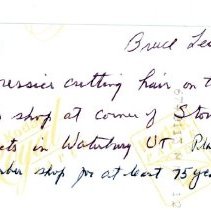 Bruce Le
ressier cutting hair on t
shop at corner of Sto
ets in Waterbury VT. Pl
ber shop for at least 75 ye